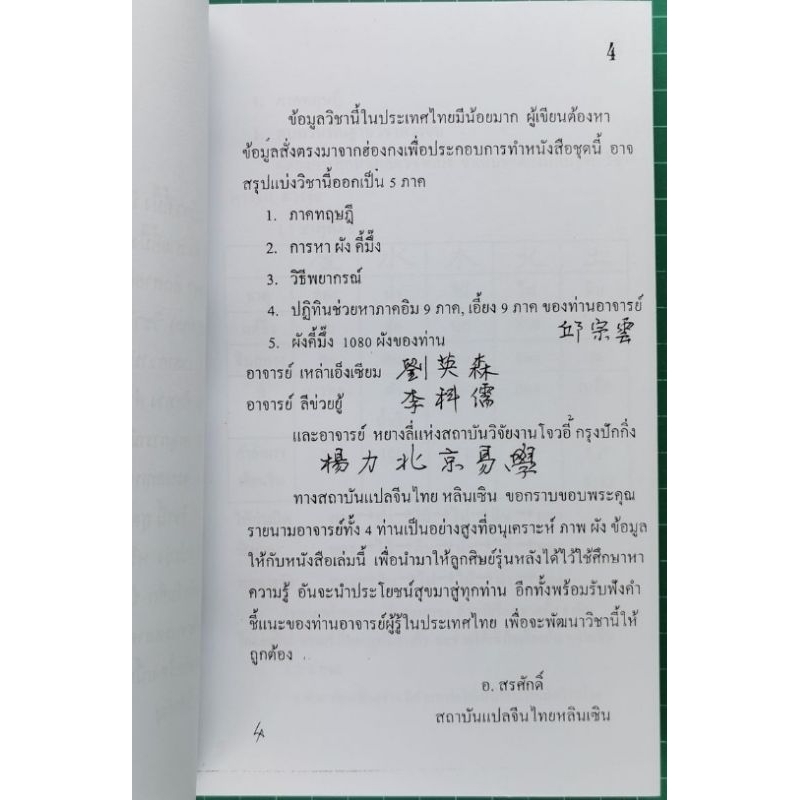 4
ข้อมูลวิชานี้ในประเทศไทยมีน้อยมาก ผู้เขียนต้องหา
ข้อมูลสั่งตรงมาจากฮ่องกงเพื่อประกอบการทำหนังสือชุดนี้ อาจ
สรุปแบ่งวิชานี้ออกเป็น 5 ภาค
1. ภาคทฤษฎี
2. การหา ผัง คี้มึ้ง
3. วิธีพยากรณ์
4. ปฏิทินช่วยหาภาคอิม 9 ภาค, เอี้ยง 9 ภาค ของท่านอาจารย์
邱宗雲
5. ผังคี้มึ้ง 1080 ผังของท่าน
อาจารย์ เหล่าเอ็งเซียม 劉英森
อาจารย์ ลีข่วยยู้ 李科儒
และอาจารย์ หยางลี่แห่งสถาบันวิจัยงานโจวอี้ กรุงปักกิ่ง
楊力北京易學
ทางสถาบันแปลจีนไทย หลินเซิน ขอกราบขอบพระคุณ
รายนามอาจารย์ทั้ง 4 ท่านเป็นอย่างสูงที่อนุเคราะห์ ภาพ ผัง ข้อมูล
ให้กับหนังสือเล่มนี้ เพื่อนำมาให้ลูกศิษย์รุ่นหลังได้ไว้ใช้ศึกษาหา
ความรู้ อันจะนำประโยชน์สุขมาสู่ทุกท่าน อีกทั้งพร้อมรับฟังคำ
ชี้แนะของท่านอาจารย์ผู้รู้ในประเทศไทย เพื่อจะพัฒนาวิชานี้ให้
ถูกต้อง
อ. สรศักดิ์
สถาบันแปลจีนไทยหลินเซิน